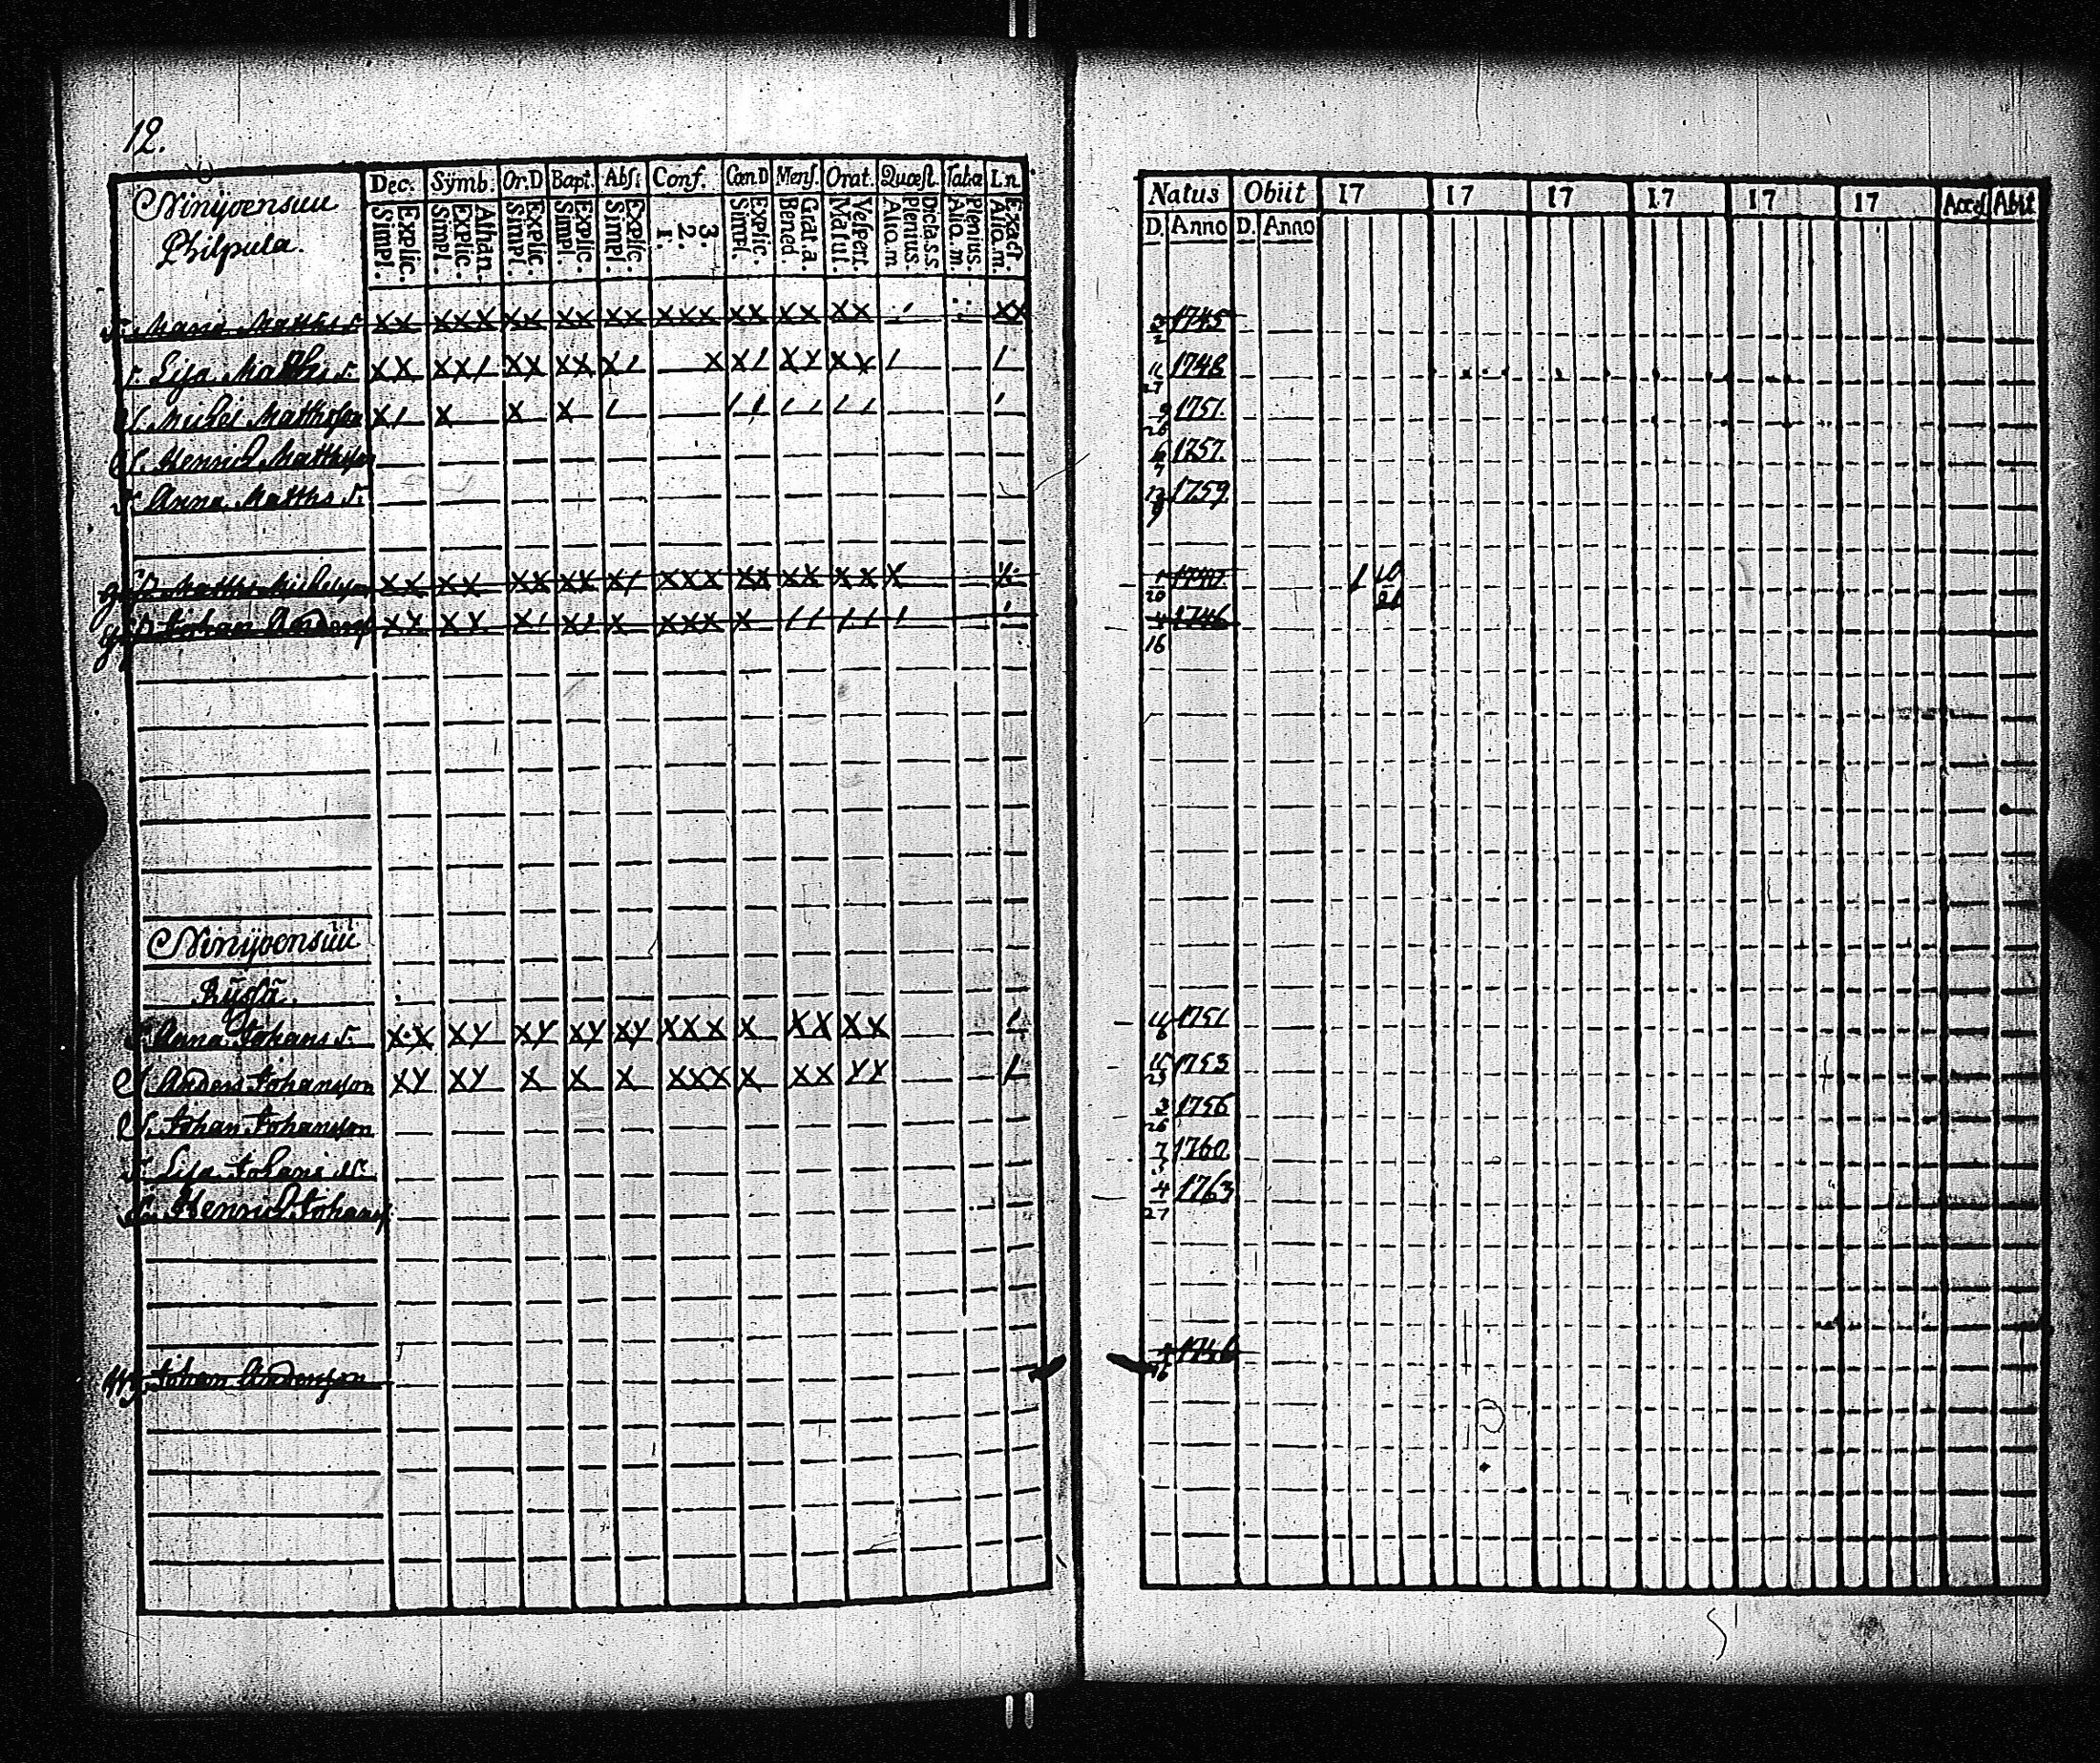 12.
Ninijvensuu
Philpula.
Dec. Symb. Or.D Bapt. Abs: Conf. Cœn D Mens. Orat. Quæst. Tabæ I.n
Simpl. Explic. Simpl. Explic. Athan. Simpl. Explic. Simpl. Explic. Simpl. Explic. 1. 2. 3. Simpl. Explic. Bened. Grat. a. Matut. Vespert. Alio. m Plenius. Dicta s.s. Alio. m. Plenius. Alio. m. Exact.
Natus Obiit 17 17 17 17 17 17 Acces Abit
D. Anno D. Anno
Maria Matths d. XX XXX XX XX XX XXX XX XX XX XX 1745
Lisa Matths d. XX XX/ XX XX X/ X X/ XX XX / / 11/27 1748
Michel Matthsson X/ X X X / // // // / 9/26 1751.
Henrich Matthsson 6/7 1757.
Anna Matths d. 1759
Matths Michelsson XX XX XX XX X/ XXX XX XX XX X 1/20
Johan Anders XX XX X/ X/ X XXX X // // / 4/16 1746
Ninijvensuu
Anna Johans d. XX XY XY XY XY XXX X XX XX / 1751
Anders Johansson XY XY X X X XXX X XX YY / 1753
Johan Johansson 3/26 1756
Lisa Johans d. 1760
Henrich Johans 4/27 1763
Johan Andersson 1746